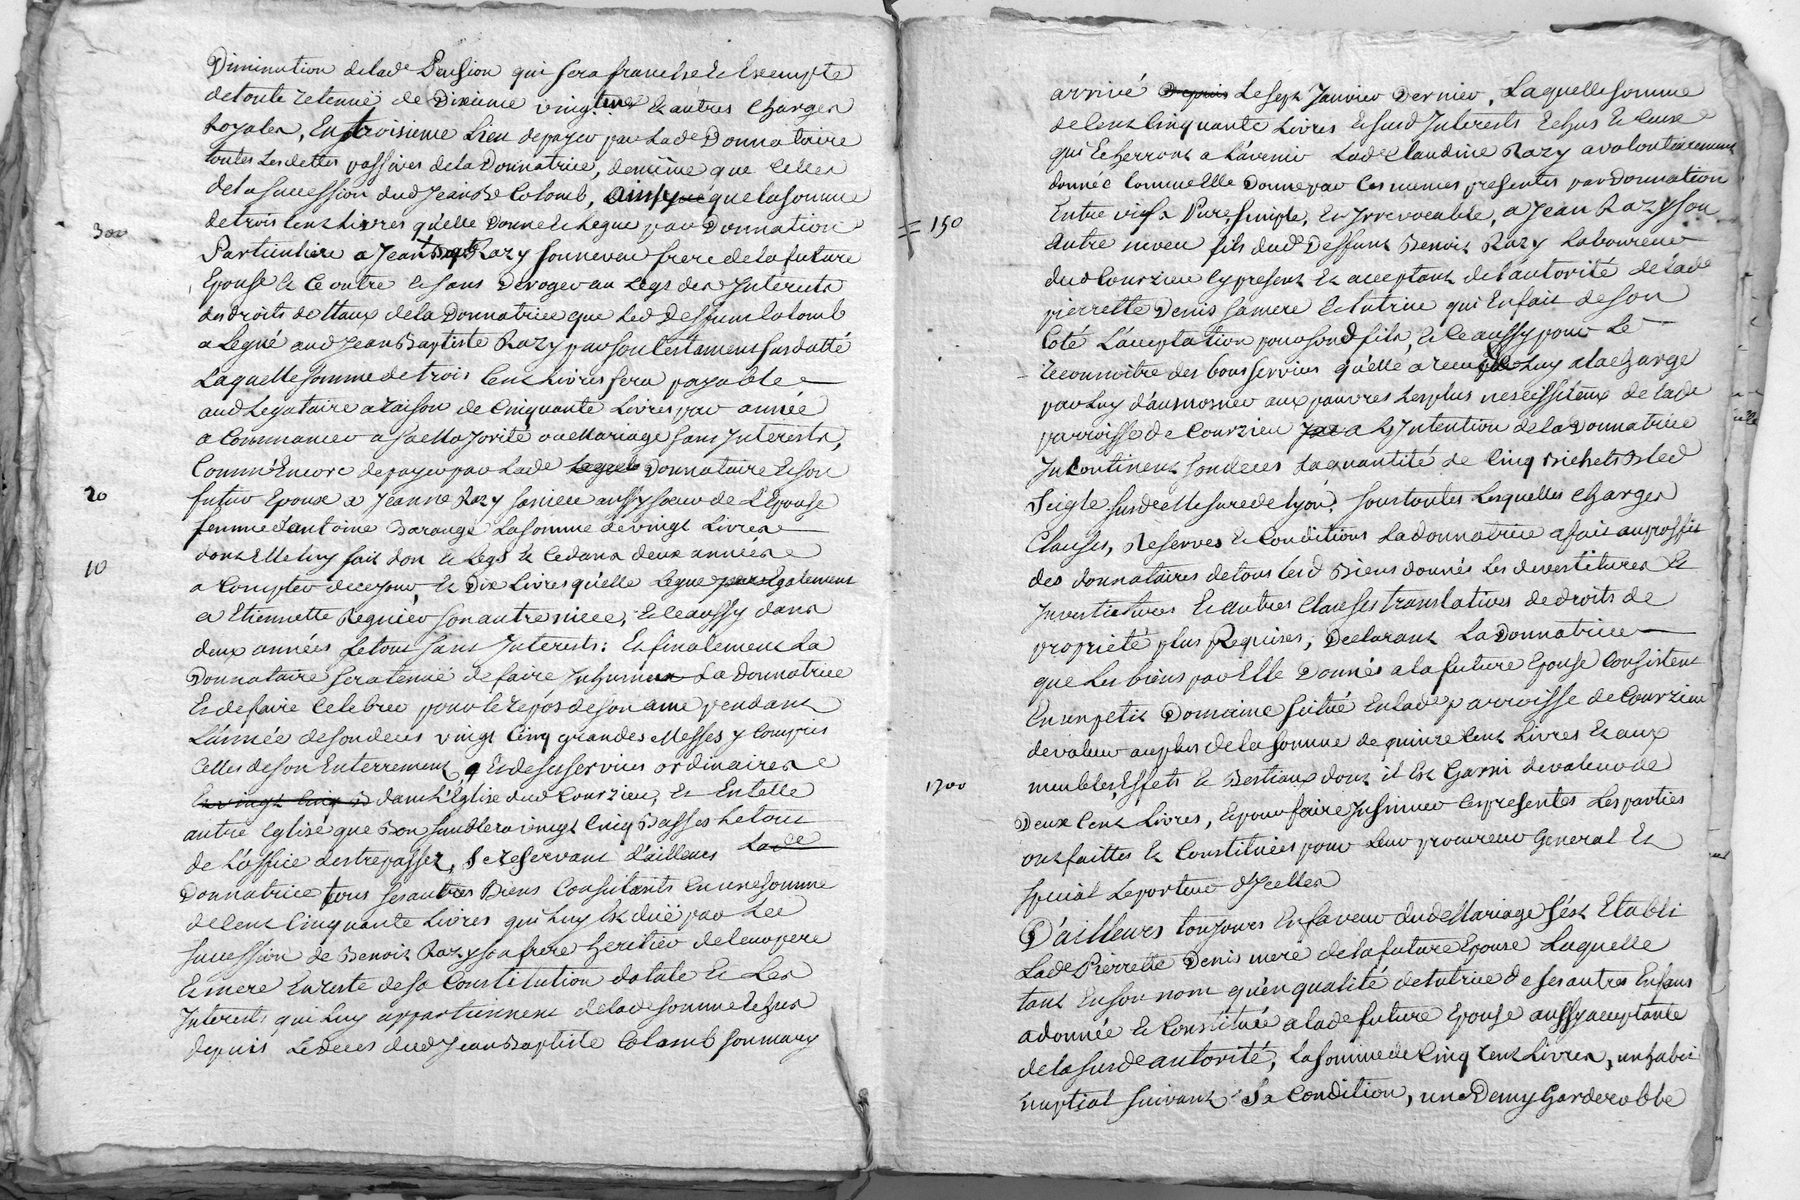 Diminution delad.e Pension qui sera franche Et Exempte
detoute retenuë de Dixieme vingt.mes Et autres Charges
Royales, En troisieme Lieu depayer par Lad.e Donnataire
toutes Les dettes passives dela Donnatrice, demême que Celles
dela succession dud Jean B.e Colomb, quela somme
300
detrois Cent Livres qu'elle Donne Et Legue par Donnation
Particuliere a Jean Bap.te Razy son neveu frere dela future
Epouse Et Ce outre Et sans Deroger au Legs des Interets
des droits dottaux dela Donnatrice que Led Deffunt Colomb
a Legué aud Jean Baptiste Razy par son testament susdatté
Laquelle somme de trois Cent Livres sera payable
aud Legataire a raison de Cinquante Livres par année
a Commancer a sa Majorité ou Mariage sans Interests,
Comm'Encore de payer par Lad.e Donnataire Et son
20
futur Epoux a Jeanne Razy sa niece aussy soeur de L'Epouse
femme d'antoine Barange La somme de vingt Livres
10
dont Elle luy fait don Et Legs Et Ce dans deux années
a Compter de ce jour, Et Dix Livres qu'elle Legue Egalement
a Etiennette Regnier son autre niece, Et Ce aussy dans
deux années Le tout sans Interets: Et finalement La
Donnataire sera tenuë de faire Inhumer La Donnatrice
Et de faire Celebrer pour le repos de son ame pendant
L'année de son deces vingt Cinq grandes Messes y Compris
Celles de son Enterrement, Et de ses services ordinaires
dans L'Eglise dud Courzieu, Et En telle
autre Eglise que Bon semblera vingt Cinq Basses Le tout
de L'office des trepassez, se reservant d'ailleurs Lad.e
Donnatrice tous ses autres Biens Consistants En une somme
de Cent Cinquante Livres qui Luy Est duë par La
succession de Benoit Razy son frere heritier de leur pere
Et mere En reste de sa Constitution dotale Et Les
Interets qui Luy appartiennent de lad.e somme
depuis Le deces dud Jean Baptiste Colomb son mary
arrivé Depuis Le sept Janvier Dernier, Laquelle somme
de Cent Cinquante Livres Et susd Interests Echus Et Ceux
qui Echerront a L'avenir Lad.e Claudine Razy a volontairement
donnée Comm'Elle Donne par Ces memes presentes par Donnation
150
Entre vifs Pure simple, Et Irrevocable, a Jean Razy son
autre neveu fils dud Deffunt Benoit Razy Laboureur
dud Courzieu Cy present Et acceptant de L'autorité de lad.e
pierrette Denis sa mere Et tutrice qui En fait de son
Coté L'acceptation pour sond fils, Et Ce aussy pour Le
reconnoitre des bons services qu'elle a reçu de Luy a la Charge
par Luy d'aumosner aux pauvres Les plus nescessiteux de lad.e
parroisse de Courzieu a L'Intention de la Donnatrice
Incontinent son deces La quantité de Cinq Bichets Bled
Seigle susd.e Mesure de Lyon; sous toutes Lesquelles Charges
Clauses, Reserves Et Conditions La donnatrice a fait au proffit
des donnataires de tous Lesd Biens donnés Les devestitures Et
Investitures Et autres Clauses translatives de droits de
proprieté plus Requises, Declarant La Donnatrice
que Les biens par Elle Donnés a la future Epouse Consistent
En un petit Domaine scitué En lad.e parroisse de Courzieu
de valeur au plus de la somme de quinze Cent Livres Et aux
1700
meubles, Effets Et Bestiaux dont il Est Garni de valeur de
Deux Cent Livres, Et pour faire Insinuer Ces presentes Les parties
ont faittes Et Constituées pour Leur procureur General Et
special Le porteur d'Icelles
D'ailleurs toujours En faveur dud Mariage s'est Etabli
Lad.e Pierrette Denis mere de la future Epouse Laquelle
tant En son nom qu'en qualité de tutrice de ses autres Enfans
a donnée Et Constituée a lad.e future Epouse aussy acceptante
de la susd.e autorité, La somme de Cinq Cent Livres, un habit
nuptial suivant Sa Condition, une Demy Garderobbe